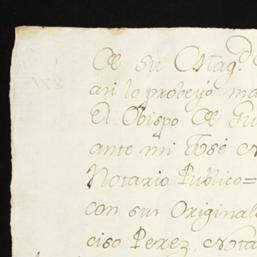 De su Mag.d
asi lo probeyo ma
El Obispo de Gu
ante mi José
Notario Publico=
con sus Original
ciso Perez. Nota